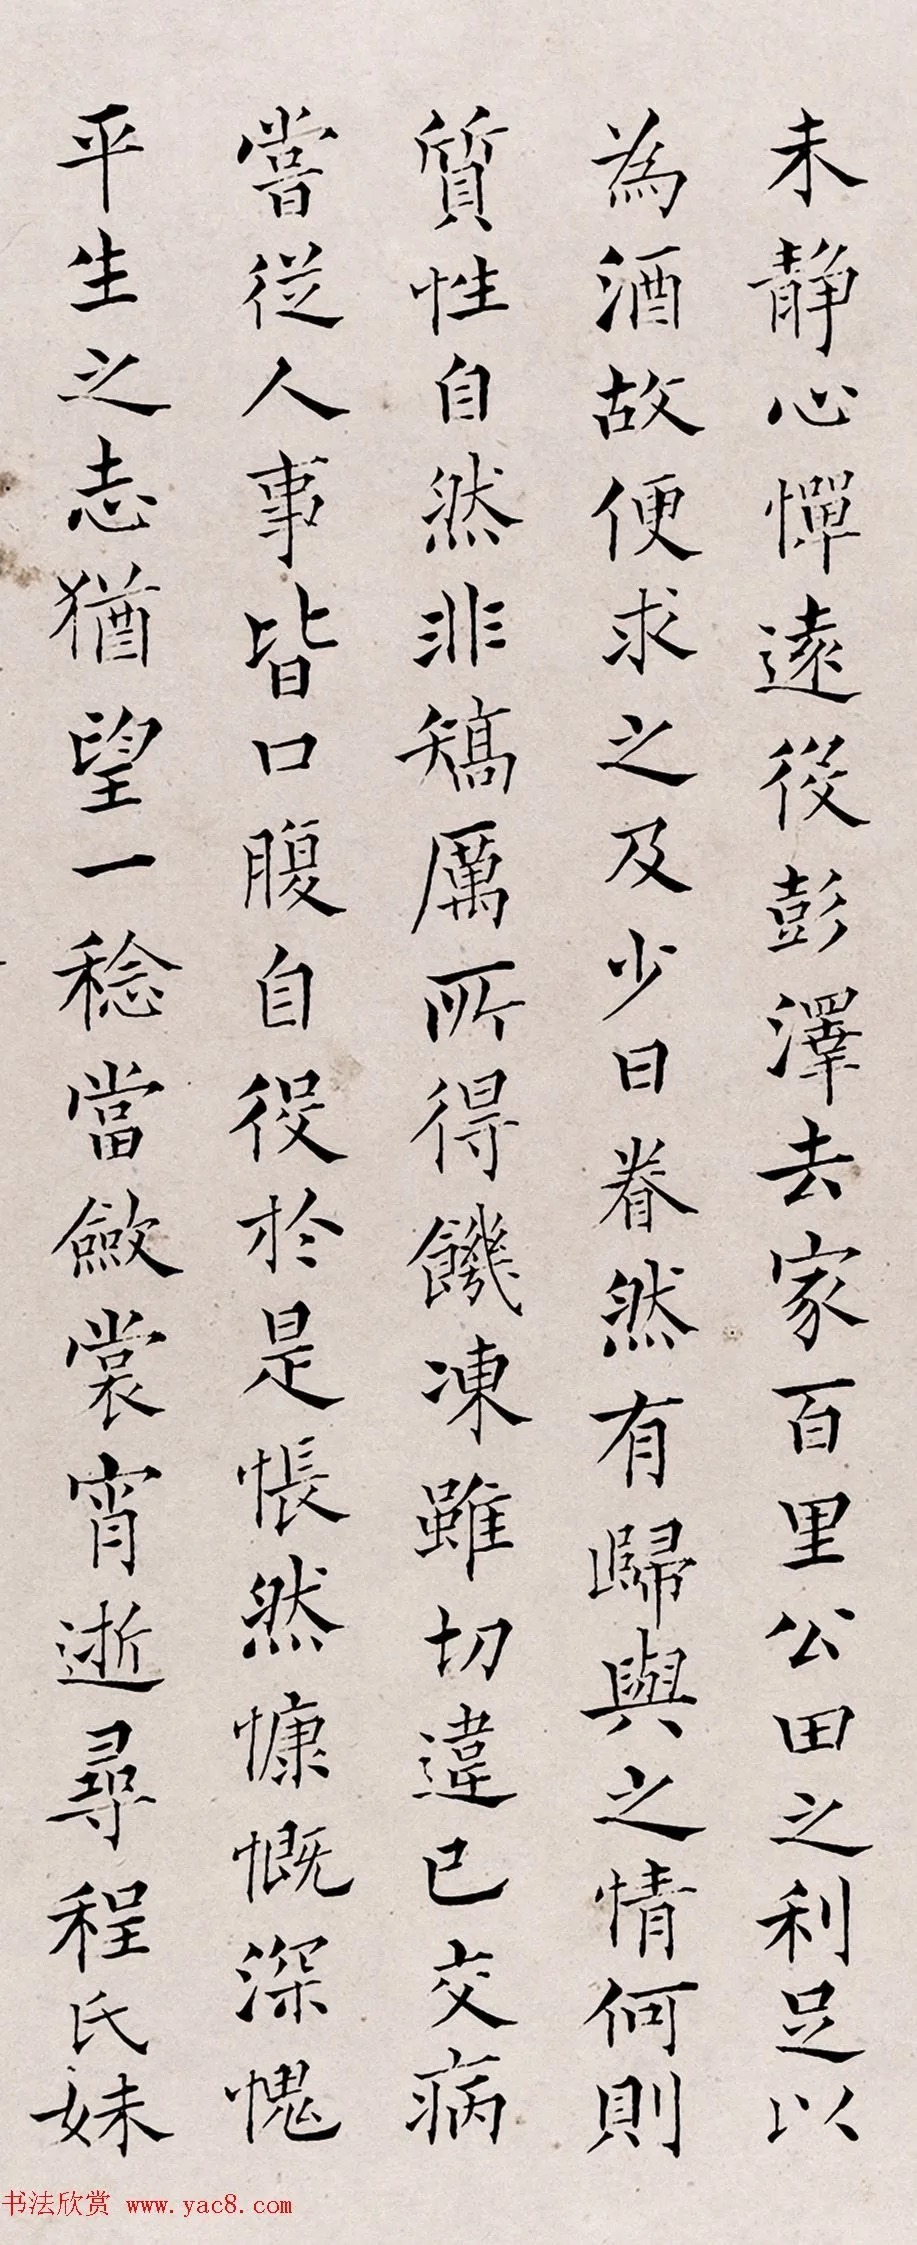 未静心憚遠役彭澤去家百里公田之利足以
為酒故便求之及少日眷然有歸與之情何則
質性自然非矯厲所得饑凍雖切違已交病
嘗從人事皆口腹自役於是悵然慷慨深愧
平生之志猶望一稔當斂裳宵逝尋程氏妹
书法欣赏 www.yac8.com